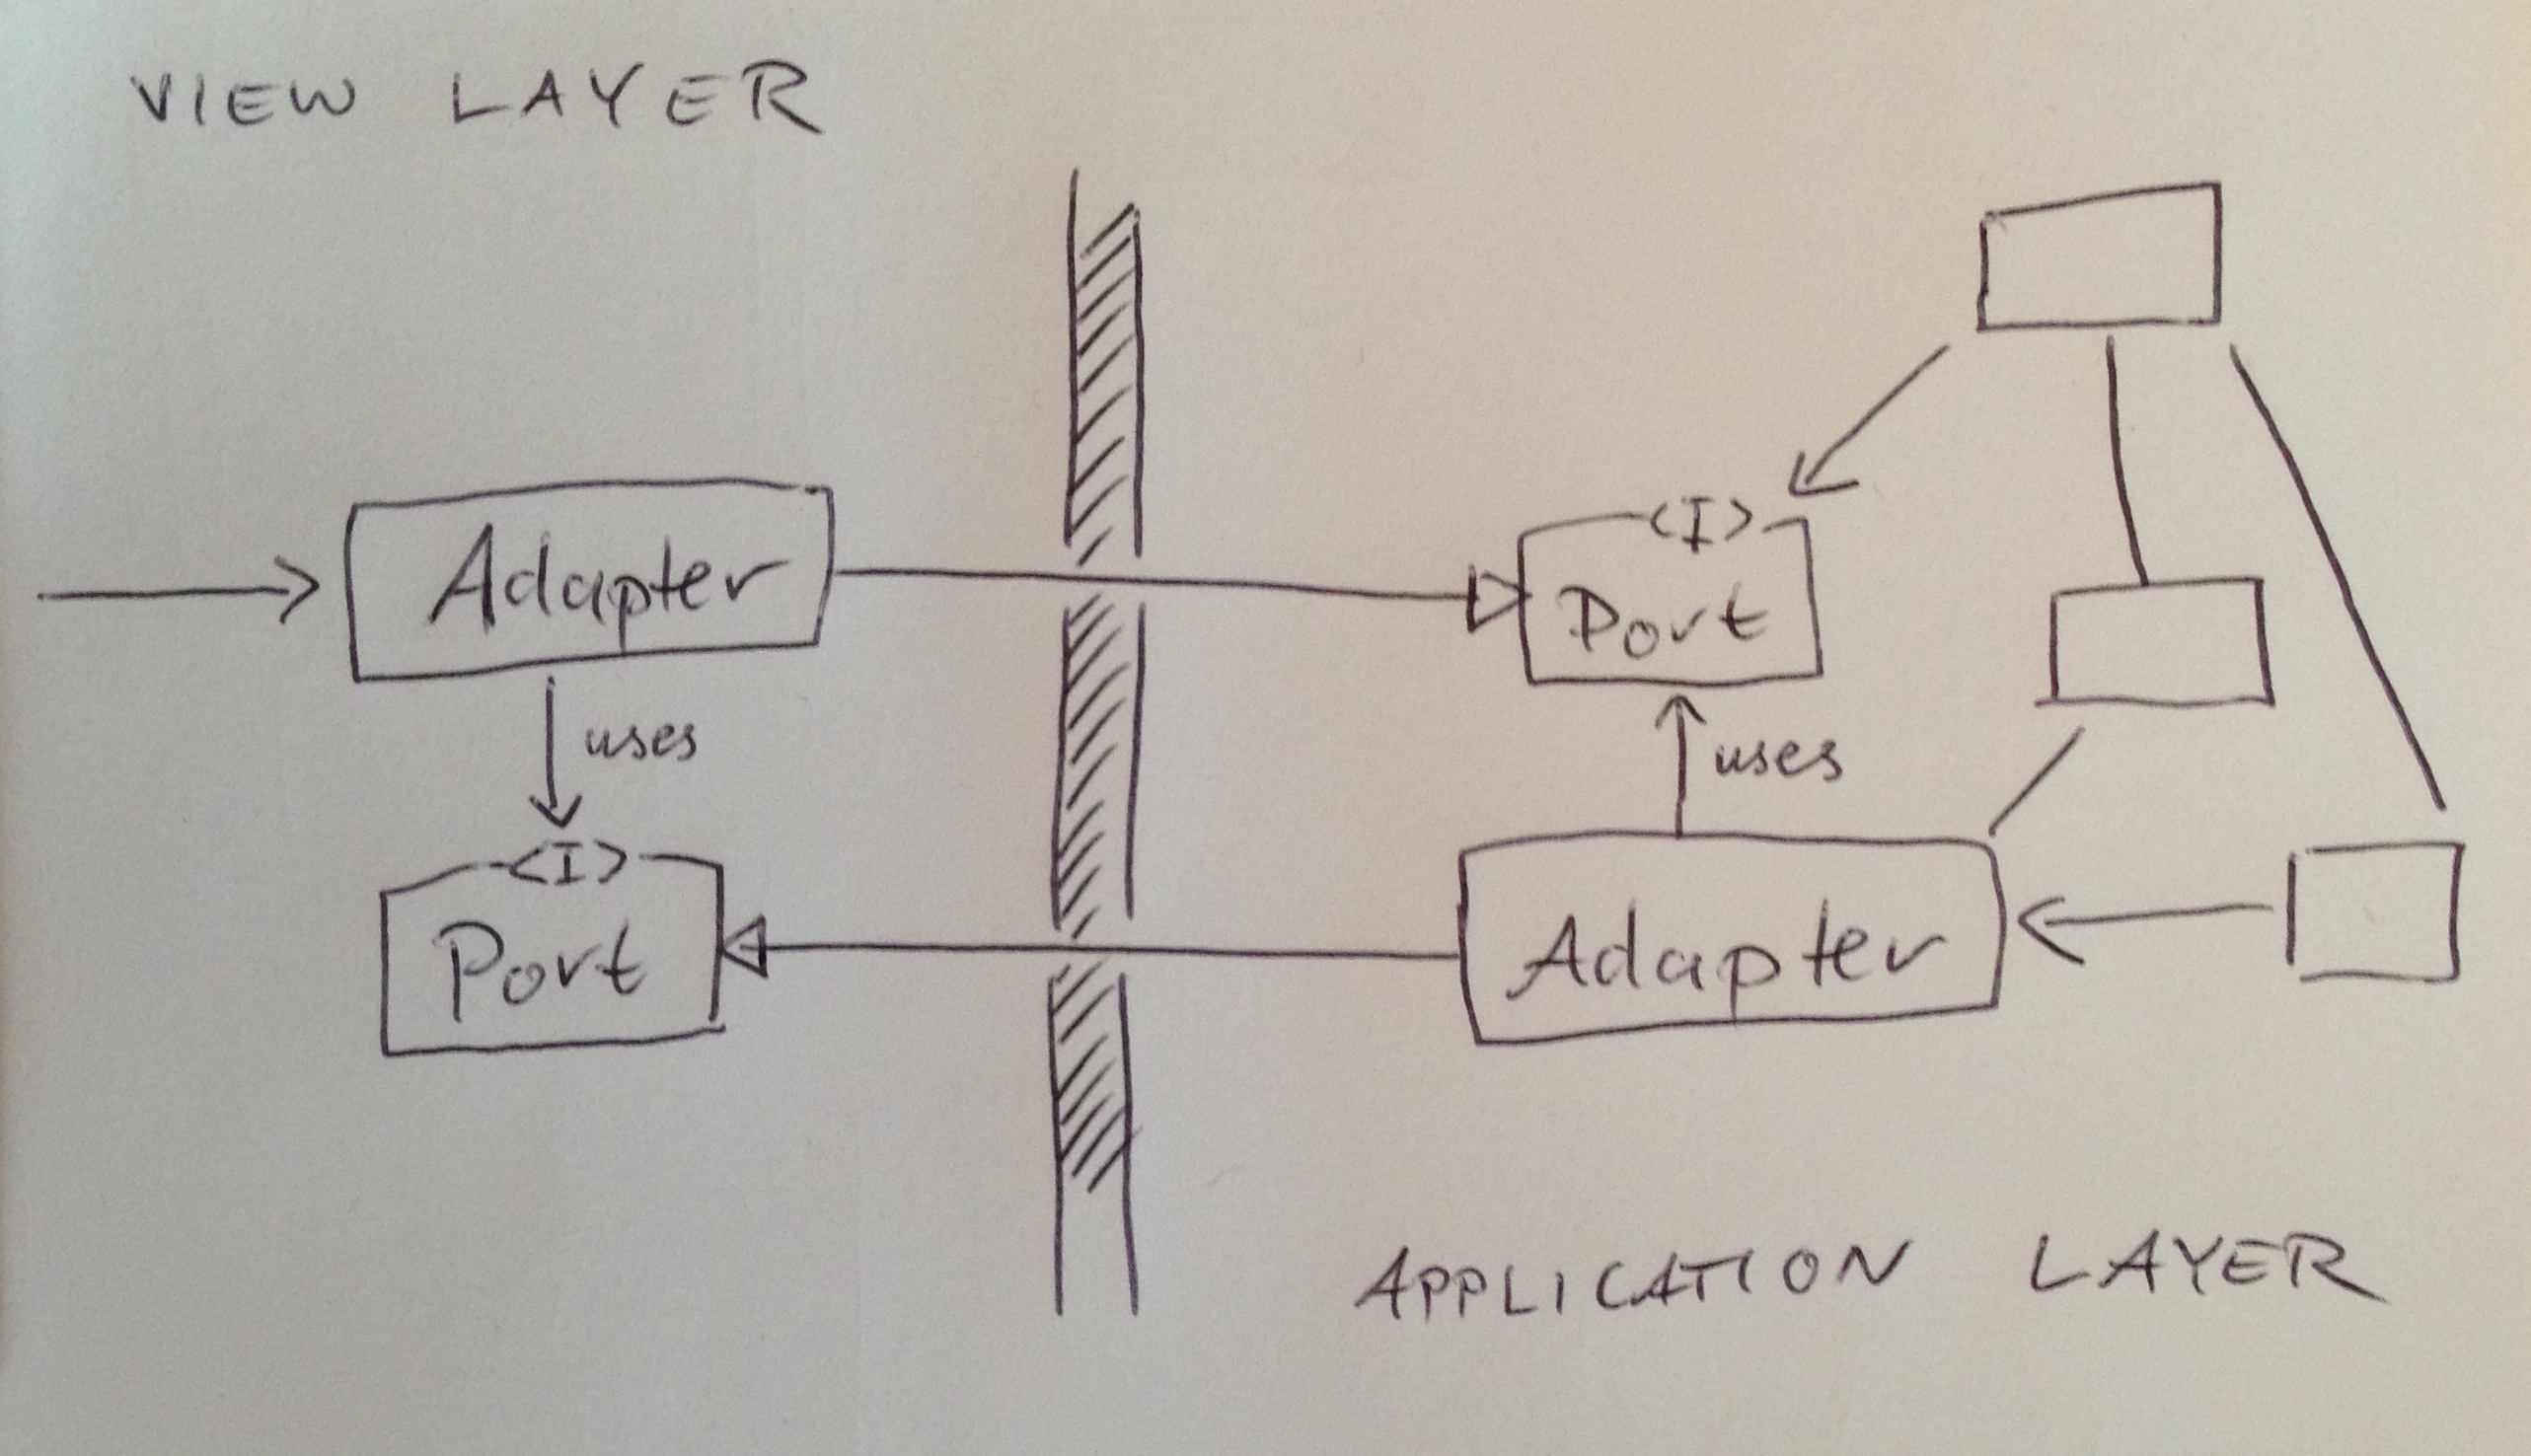 VIEW LAYER
Adapter
uses
<I>
Port
<I>
Port
uses
Adapter
APPLICATION LAYER